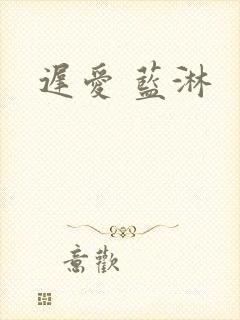 遲愛 藍淋
意歡